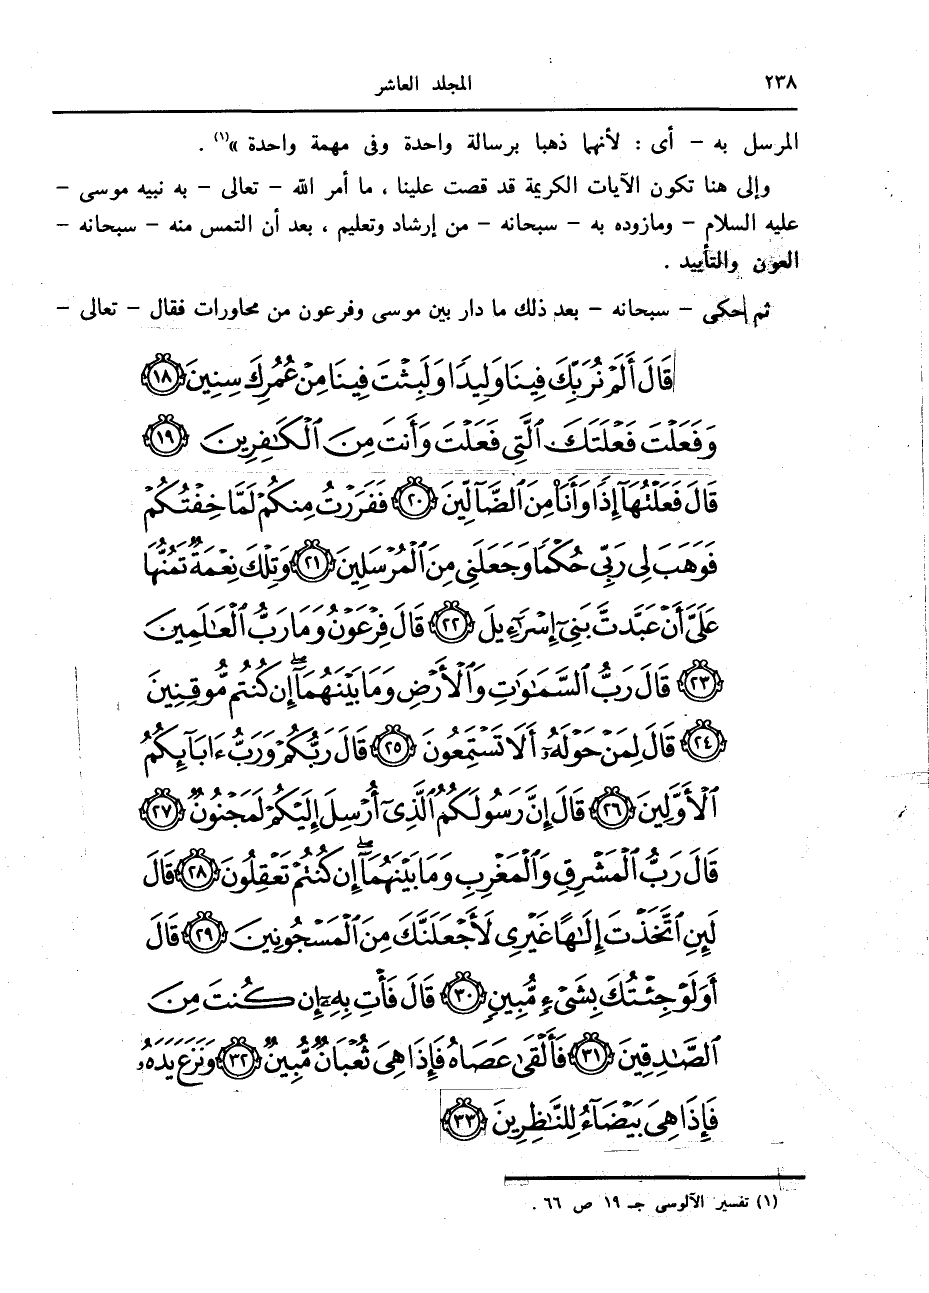 ٢٣٨
المجلد العاشر
المرسل به – أى : لأنهما ذهبا برسالة واحدة وفى مهمة واحدة »(١) .
وإلى هنا تكون الآيات الكريمة قد قصت علينا ، ما أمر الله – تعالى – به نبيه موسى –
عليه السلام – ومازوده به – سبحانه – من إرشاد وتعليم ، بعد أن التمس منه – سبحانه –
العون والتأييد .
ثم حكى – سبحانه – بعد ذلك ما دار بين موسى وفرعون من محاورات فقال – تعالى –
قَالَ أَلَمْ نُرَبِّكَ فِينَا وَلِيدًا وَلَبِثْتَ فِينَا مِنْ عُمُرِكَ سِنِينَ ﴿١٨﴾
وَفَعَلْتَ فَعْلَتَكَ ٱلَّتِى فَعَلْتَ وَأَنتَ مِنَ ٱلْكَٰفِرِينَ ﴿١٩﴾
قَالَ فَعَلْتُهَآ إِذًا وَأَنَا۠ مِنَ ٱلضَّآلِّينَ ﴿٢٠﴾ فَفَرَرْتُ مِنكُمْ لَمَّا خِفْتُكُمْ
فَوَهَبَ لِى رَبِّى حُكْمًا وَجَعَلَنِى مِنَ ٱلْمُرْسَلِينَ ﴿٢١﴾ وَتِلْكَ نِعْمَةٌ تَمُنُّهَا
عَلَىَّ أَنْ عَبَّدتَّ بَنِىٓ إِسْرَٰٓءِيلَ ﴿٢٢﴾ قَالَ فِرْعَوْنُ وَمَا رَبُّ ٱلْعَٰلَمِينَ
﴿٢٣﴾ قَالَ رَبُّ ٱلسَّمَٰوَٰتِ وَٱلْأَرْضِ وَمَا بَيْنَهُمَآ ۖ إِن كُنتُم مُّوقِنِينَ
﴿٢٤﴾ قَالَ لِمَنْ حَوْلَهُۥٓ أَلَا تَسْتَمِعُونَ ﴿٢٥﴾ قَالَ رَبُّكُمْ وَرَبُّ ءَابَآئِكُمُ
ٱلْأَوَّلِينَ ﴿٢٦﴾ قَالَ إِنَّ رَسُولَكُمُ ٱلَّذِىٓ أُرْسِلَ إِلَيْكُمْ لَمَجْنُونٌ ﴿٢٧﴾
قَالَ رَبُّ ٱلْمَشْرِقِ وَٱلْمَغْرِبِ وَمَا بَيْنَهُمَآ ۖ إِن كُنتُمْ تَعْقِلُونَ ﴿٢٨﴾ قَالَ
لَئِنِ ٱتَّخَذْتَ إِلَٰهًا غَيْرِى لَأَجْعَلَنَّكَ مِنَ ٱلْمَسْجُونِينَ ﴿٢٩﴾ قَالَ
أَوَلَوْ جِئْتُكَ بِشَىْءٍ مُّبِينٍ ﴿٣٠﴾ قَالَ فَأْتِ بِهِۦٓ إِن كُنتَ مِنَ
ٱلصَّٰدِقِينَ ﴿٣١﴾ فَأَلْقَىٰ عَصَاهُ فَإِذَا هِىَ ثُعْبَانٌ مُّبِينٌ ﴿٣٢﴾ وَنَزَعَ يَدَهُۥ
فَإِذَا هِىَ بَيْضَآءُ لِلنَّٰظِرِينَ ﴿٣٣﴾
(١) تفسير الآلوسى جـ ١٩ ص ٦٦ .